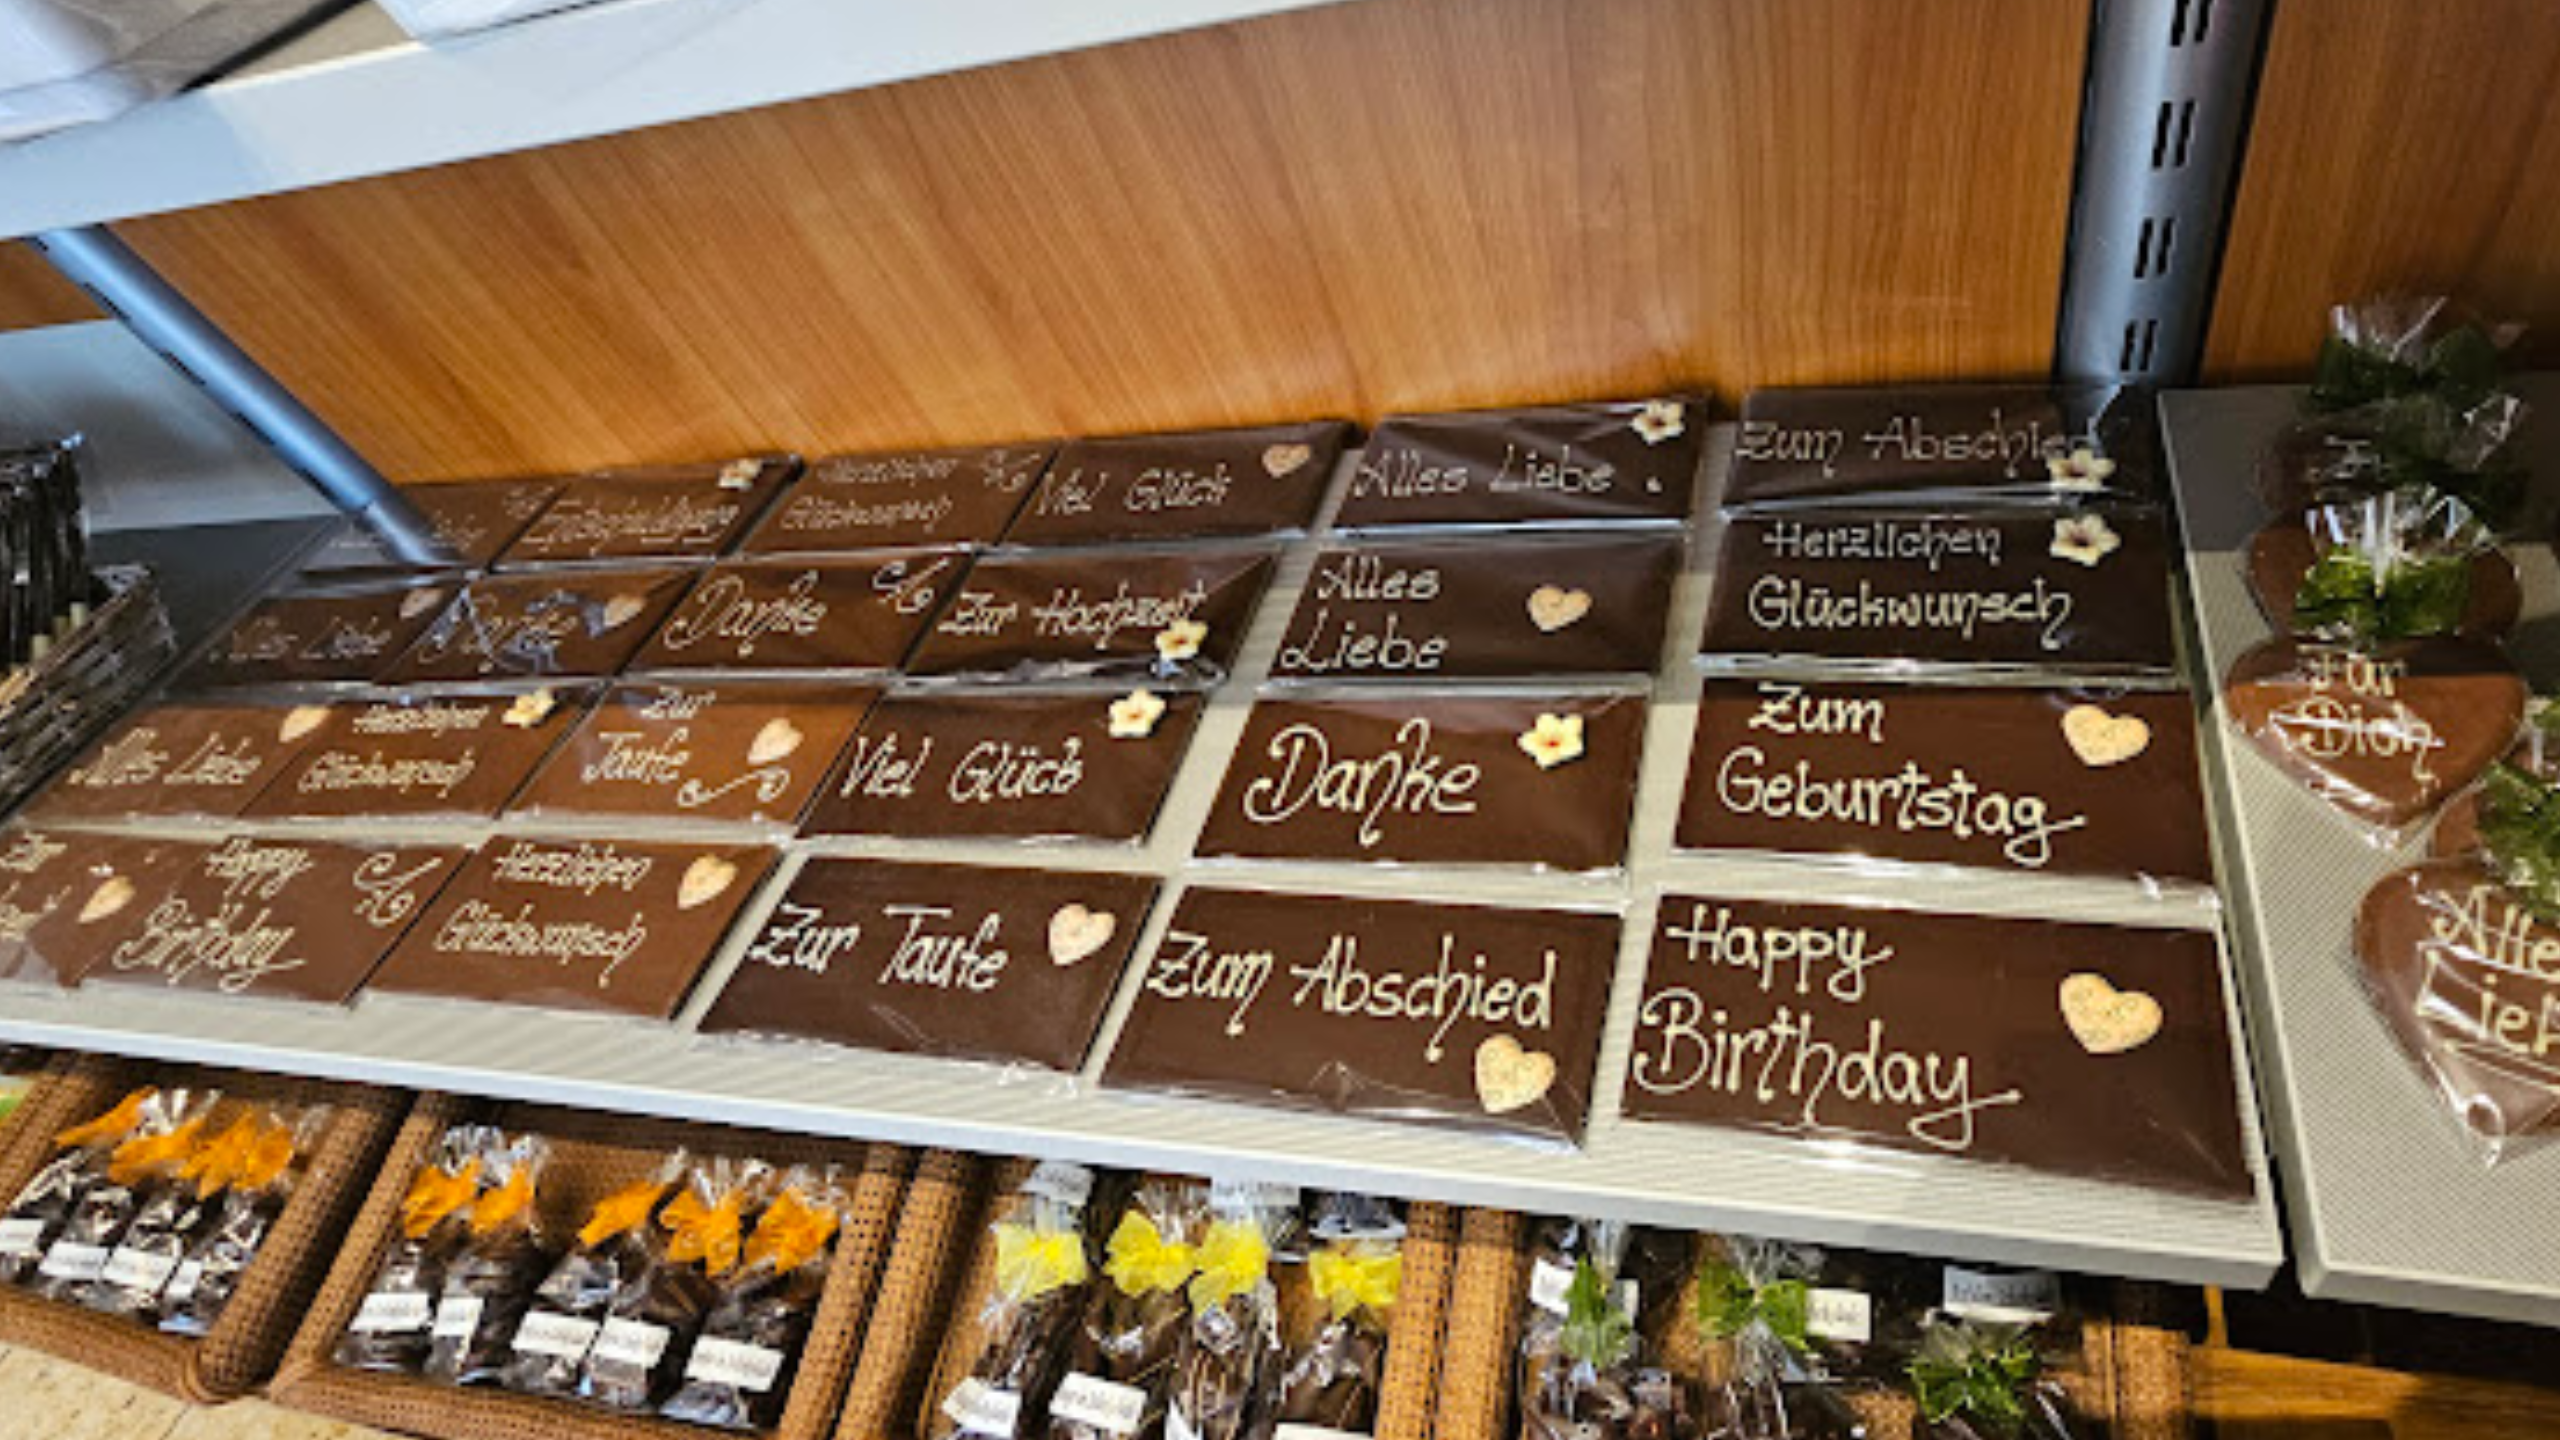 Entschuldigung
Herzlichen
Glückwunsch
Viel Glück
Alles Liebe
Zum Abschied
Alles Liebe
Danke
Danke
Zur Hochzeit
Alles
Liebe
Herzlichen
Glückwunsch
Alles Liebe
Herzlichen
Glückwunsch
Zur
Taufe
Viel Glück
Danke
Zum
Geburtstag
Zur
Happy
Birthday
Herzlichen
Glückwunsch
Zur Taufe
Zum Abschied
Happy
Birthday
Für
Dich
Alle
Lieb